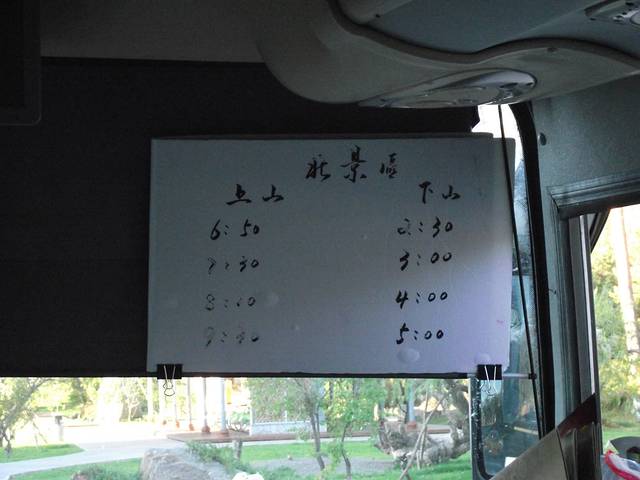 景區
上山 下山
6:50 2:30
7:30 3:00
8:10 4:00
5:00